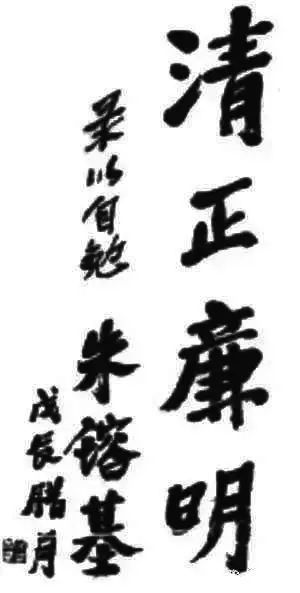 清正廉明
录以自勉 朱鎔基
戊辰腊月